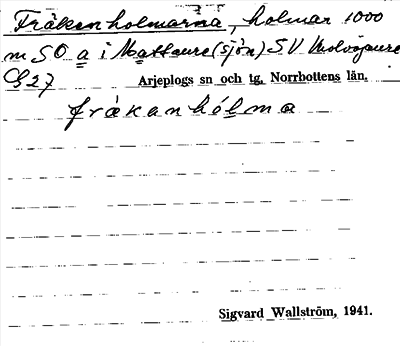 Fräkenholmarna, holmar 1000
m SO a i Mattaure (sjön) SV
G27 Arjeplogs sn och tg, Norrbottens län.
fråkanhólma
Sigvard Wallström, 1941.